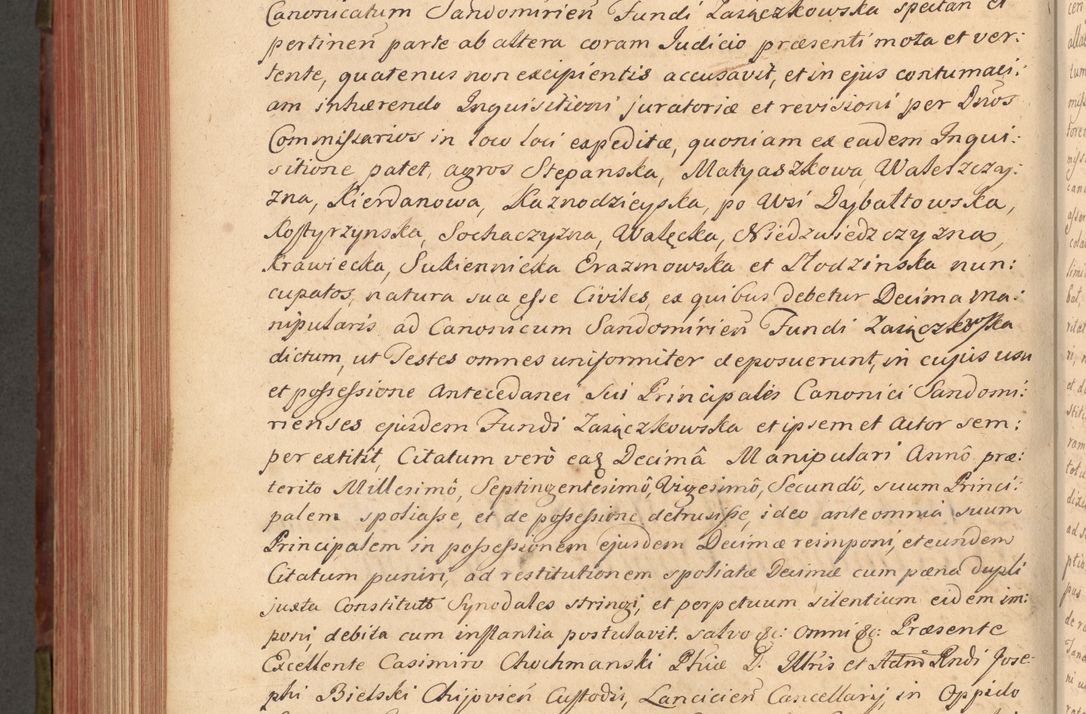 Canonicatum Sandomirien Fundi Zasięczkowska spectan et
pertinen parte ab altera coram Judicio præsenti mota et ver:
tente, quatenus non excipientis accusavit, et in ejus contumaci:
am inhærendo Inquisitioni juratoriæ et revisioni per Dnos
Commissarios in loco loci expeditæ, quoniam ex eadem Inqui:
sitione patet, agros Stępanska, Matyaszkowa, Waleszczy:
zna, Kierdanowa, Kaznodzieyska, po Wsi Dybałtowska,
Kostyrzynska, Sochaczyzna, Walęcka, Niedzwiedzczyznas,
Krawiecka, Sukiennicka Erazmowska et Słodzinska nun:
cupatos, natura sua esse Civiles, ex quibus debetur Decima Ma:
nipularis ad Canonicum Sandomirien Fundi Zasięczkowska
dictum, ut Testes omnes uniformiter deposuerunt, in cujus usu
et possessione Antecedanei sui Principales Canonici Sandomi:
rienses ejusdem Fundi Zasięczkowska et ipsemet Actor sem:
per extitit, Citatum verò eaq Decimâ Manipulari Annô præ:
terito Millesimô, Septingentesimô, Vigesimô, Secundô, suum Princi:
palem spoliasse, et de possessione detrusisse, ideo ante omnia suum
Principalem in possessionem ejusdem Decimæ reimponi, et eundem
Citatum puniri, ad restitutionem spoliatæ Decimæ cum pæna dupli
juxta Constitut Synodales stringi, et perpetuum silentium eidem im:
poni, debita cum instantia postulavit. salvo &c: omni &c: Præsente
Excellente Casimiro Chochmanski D. Illris et Rndi Jose:
phi Bielski Chijovien Custodis, Lancicien Cancellarij, in Oppido